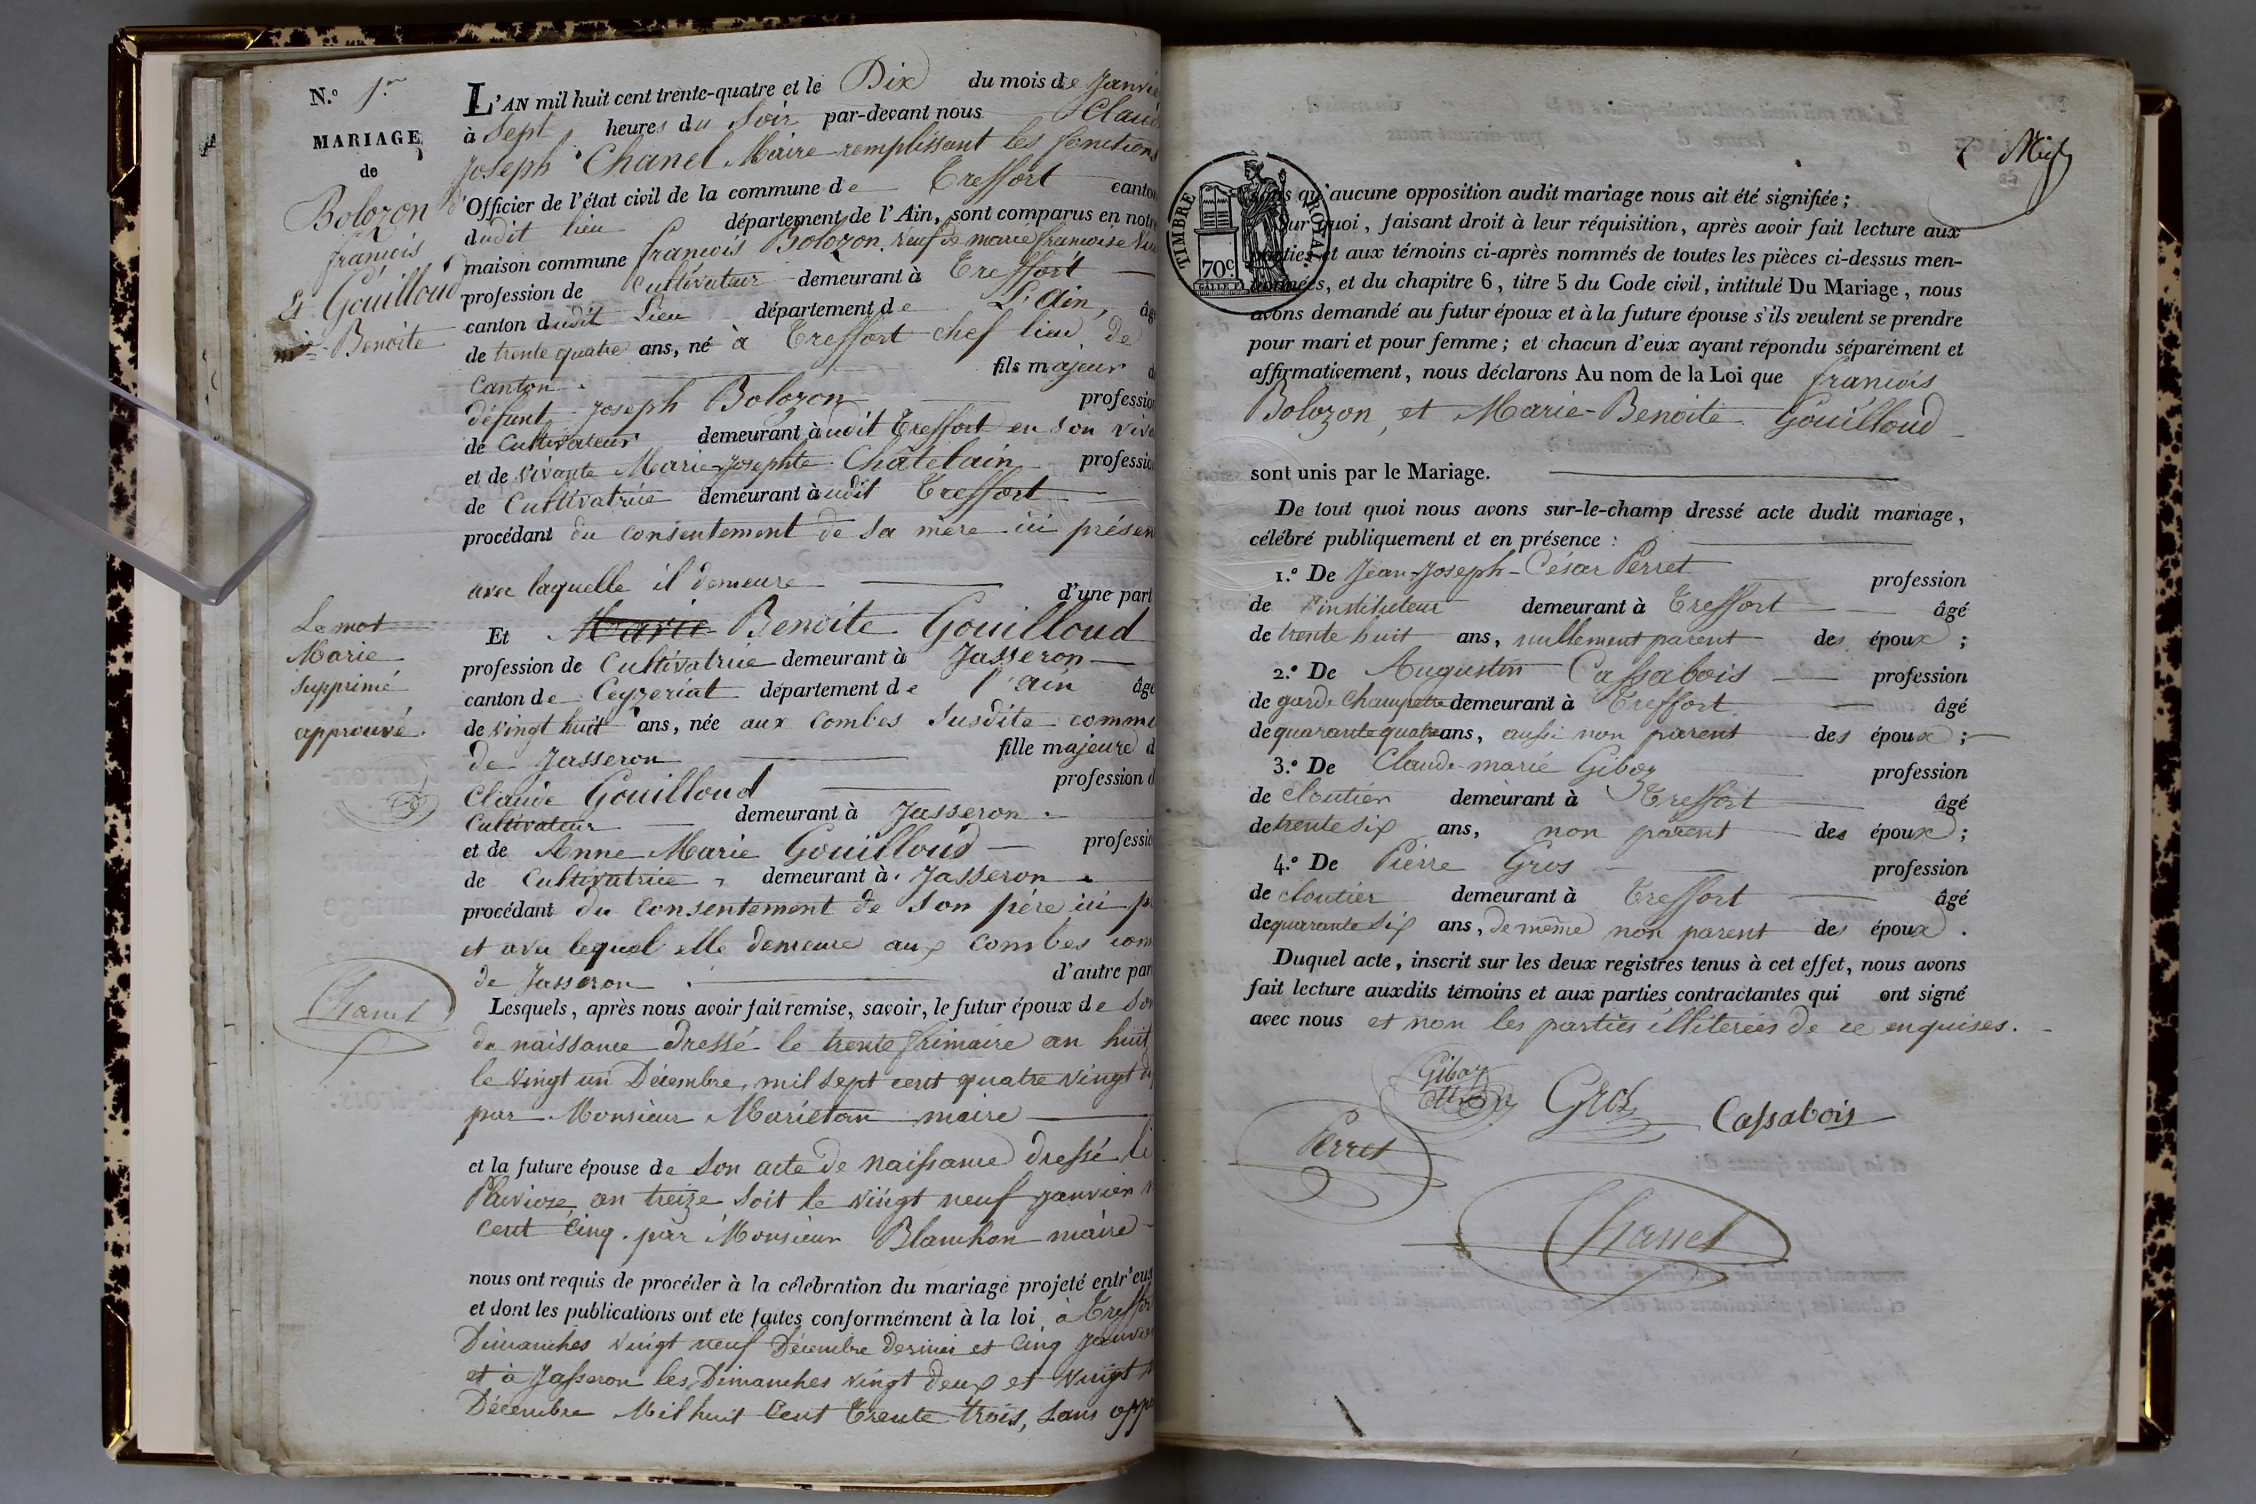 N.º 1.er
MARIAGE
de
Bolozon
françois
et Gouilloud
Benoite
L'AN mil huit cent trente-quatre et le Dix du mois de Janvie
à Sept heures du Soir par-devant nous Claud
Joseph Chanel Maire remplissant les fonctions
d'Officier de l'état civil de la commune de Treffort canton
dudit lieu département de l'Ain, sont comparus en notre
maison commune françois Bolozon, veuf de marie françoise
profession de Cultivateur demeurant à Treffort
canton dudit Lieu département de L'Ain, âgé
de trente quatre ans, né à Treffort chef lieu de
Canton. fils majeur d
défunt Joseph Bolozon profession
de Cultivateur demeurant à udit Treffort en son viva
et de vivante Marie-Josephte Châtelain profession
de Cultivatrice demeurant à udit Treffort
procédant du consentement de sa mère ici présen
avec laquelle il demeure d'une part
Et Marie Benoite Gouilloud
Le mot
Marie
supprimé
approuvé.
profession de Cultivatrice demeurant à Jasseron
canton de Ceyzeriat département de l'ain âgé
de vingt huit ans, née aux combes Susdite commu
de Jasseron fille majeure d
Claude Gouilloud profession d
Cultivateur demeurant à Jasseron.
et de Anne Marie Gouilloud professio
de Cultivatrice, demeurant à Jasseron
procédant du consentement de son père ici p
et avec lequel elle demeure aux combes com
de Jasseron. d'autre par
Chanel
Lesquels, après nous avoir fait remise, savoir, le futur époux de son
de naissance dressé le trente frimaire an huit
le vingt un Décembre, mil sept cent quatre vingt di
par Monsieur Marietan maire
et la future épouse de son acte de naissance dressé le
Pluviose an treize soit le vingt neuf janvier m
cent cinq. par Monsieur Blanchon maire
nous ont requis de procéder à la célébration du mariage projeté entr'eux
et dont les publications ont été faites conformément à la loi, à Treffor
Dimanches vingt neuf Décembre dernier et Cinq janvier
et à Jasseron les Dimanches vingt deux et vingt n
Décembre Mil huit Cent Trente trois, sans oppo
TIMBRE ROYAL
70c
sans qu'aucune opposition audit mariage nous ait été signifiée;
Sur quoi, faisant droit à leur réquisition, après avoir fait lecture aux
parties et aux témoins ci-après nommés de toutes les pièces ci-dessus men-
tionnées, et du chapitre 6, titre 5 du Code civil, intitulé Du Mariage, nous
avons demandé au futur époux et à la future épouse s'ils veulent se prendre
pour mari et pour femme; et chacun d'eux ayant répondu séparément et
affirmativement, nous déclarons Au nom de la Loi que françois
Bolozon, et Marie-Benoite Gouilloud
sont unis par le Mariage.
De tout quoi nous avons sur-le-champ dressé acte dudit mariage,
célébré publiquement et en présence :
1.º De Jean-Joseph-César Perret profession
de instituteur demeurant à Treffort âgé
de trente huit ans, nullement parent des époux;
2.º De Augustin Cassabois profession
de garde champetre demeurant à Treffort âgé
de quarante quatre ans, aussi non parent des époux;
3.º De Claude-marie Giboz profession
de cloutier demeurant à Treffort âgé
de trente six ans, non parent des époux;
4.º De Pierre Gros profession
de cloutier demeurant à Treffort âgé
de quarante six ans, de même non parent des époux.
Duquel acte, inscrit sur les deux registres tenus à cet effet, nous avons
fait lecture auxdits témoins et aux parties contractantes qui ont signé
avec nous et non les parties illiterées de ce enquises.
Giboz
Gros
Cassabois
Perret
Chanel